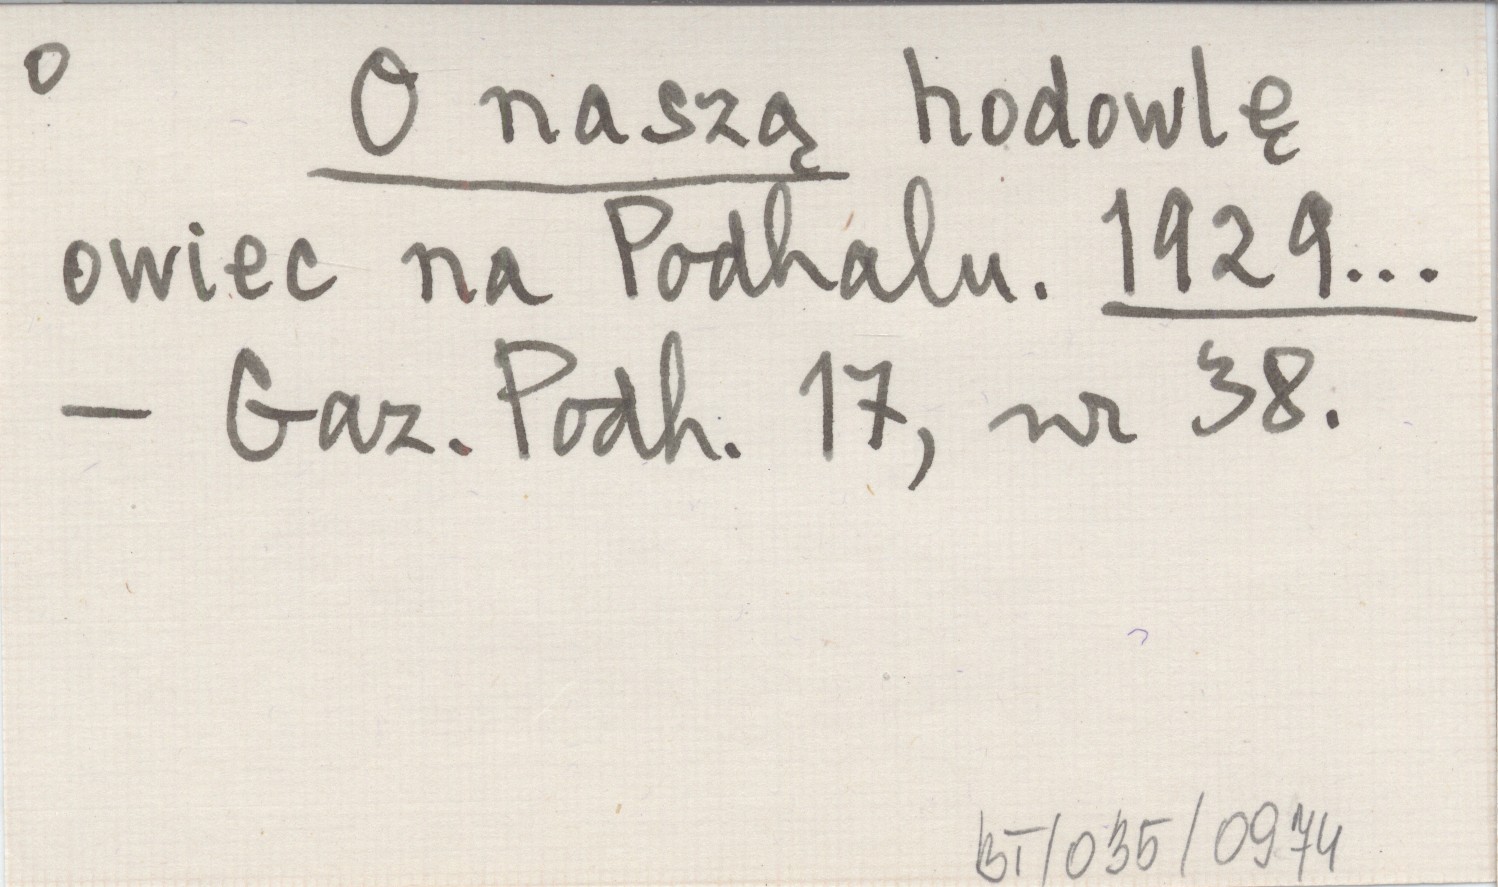 o
O naszą hodowlę
owiec na Podhalu. 1929...
— Gaz. Podh. 17, nr 38.
BT/035/0974